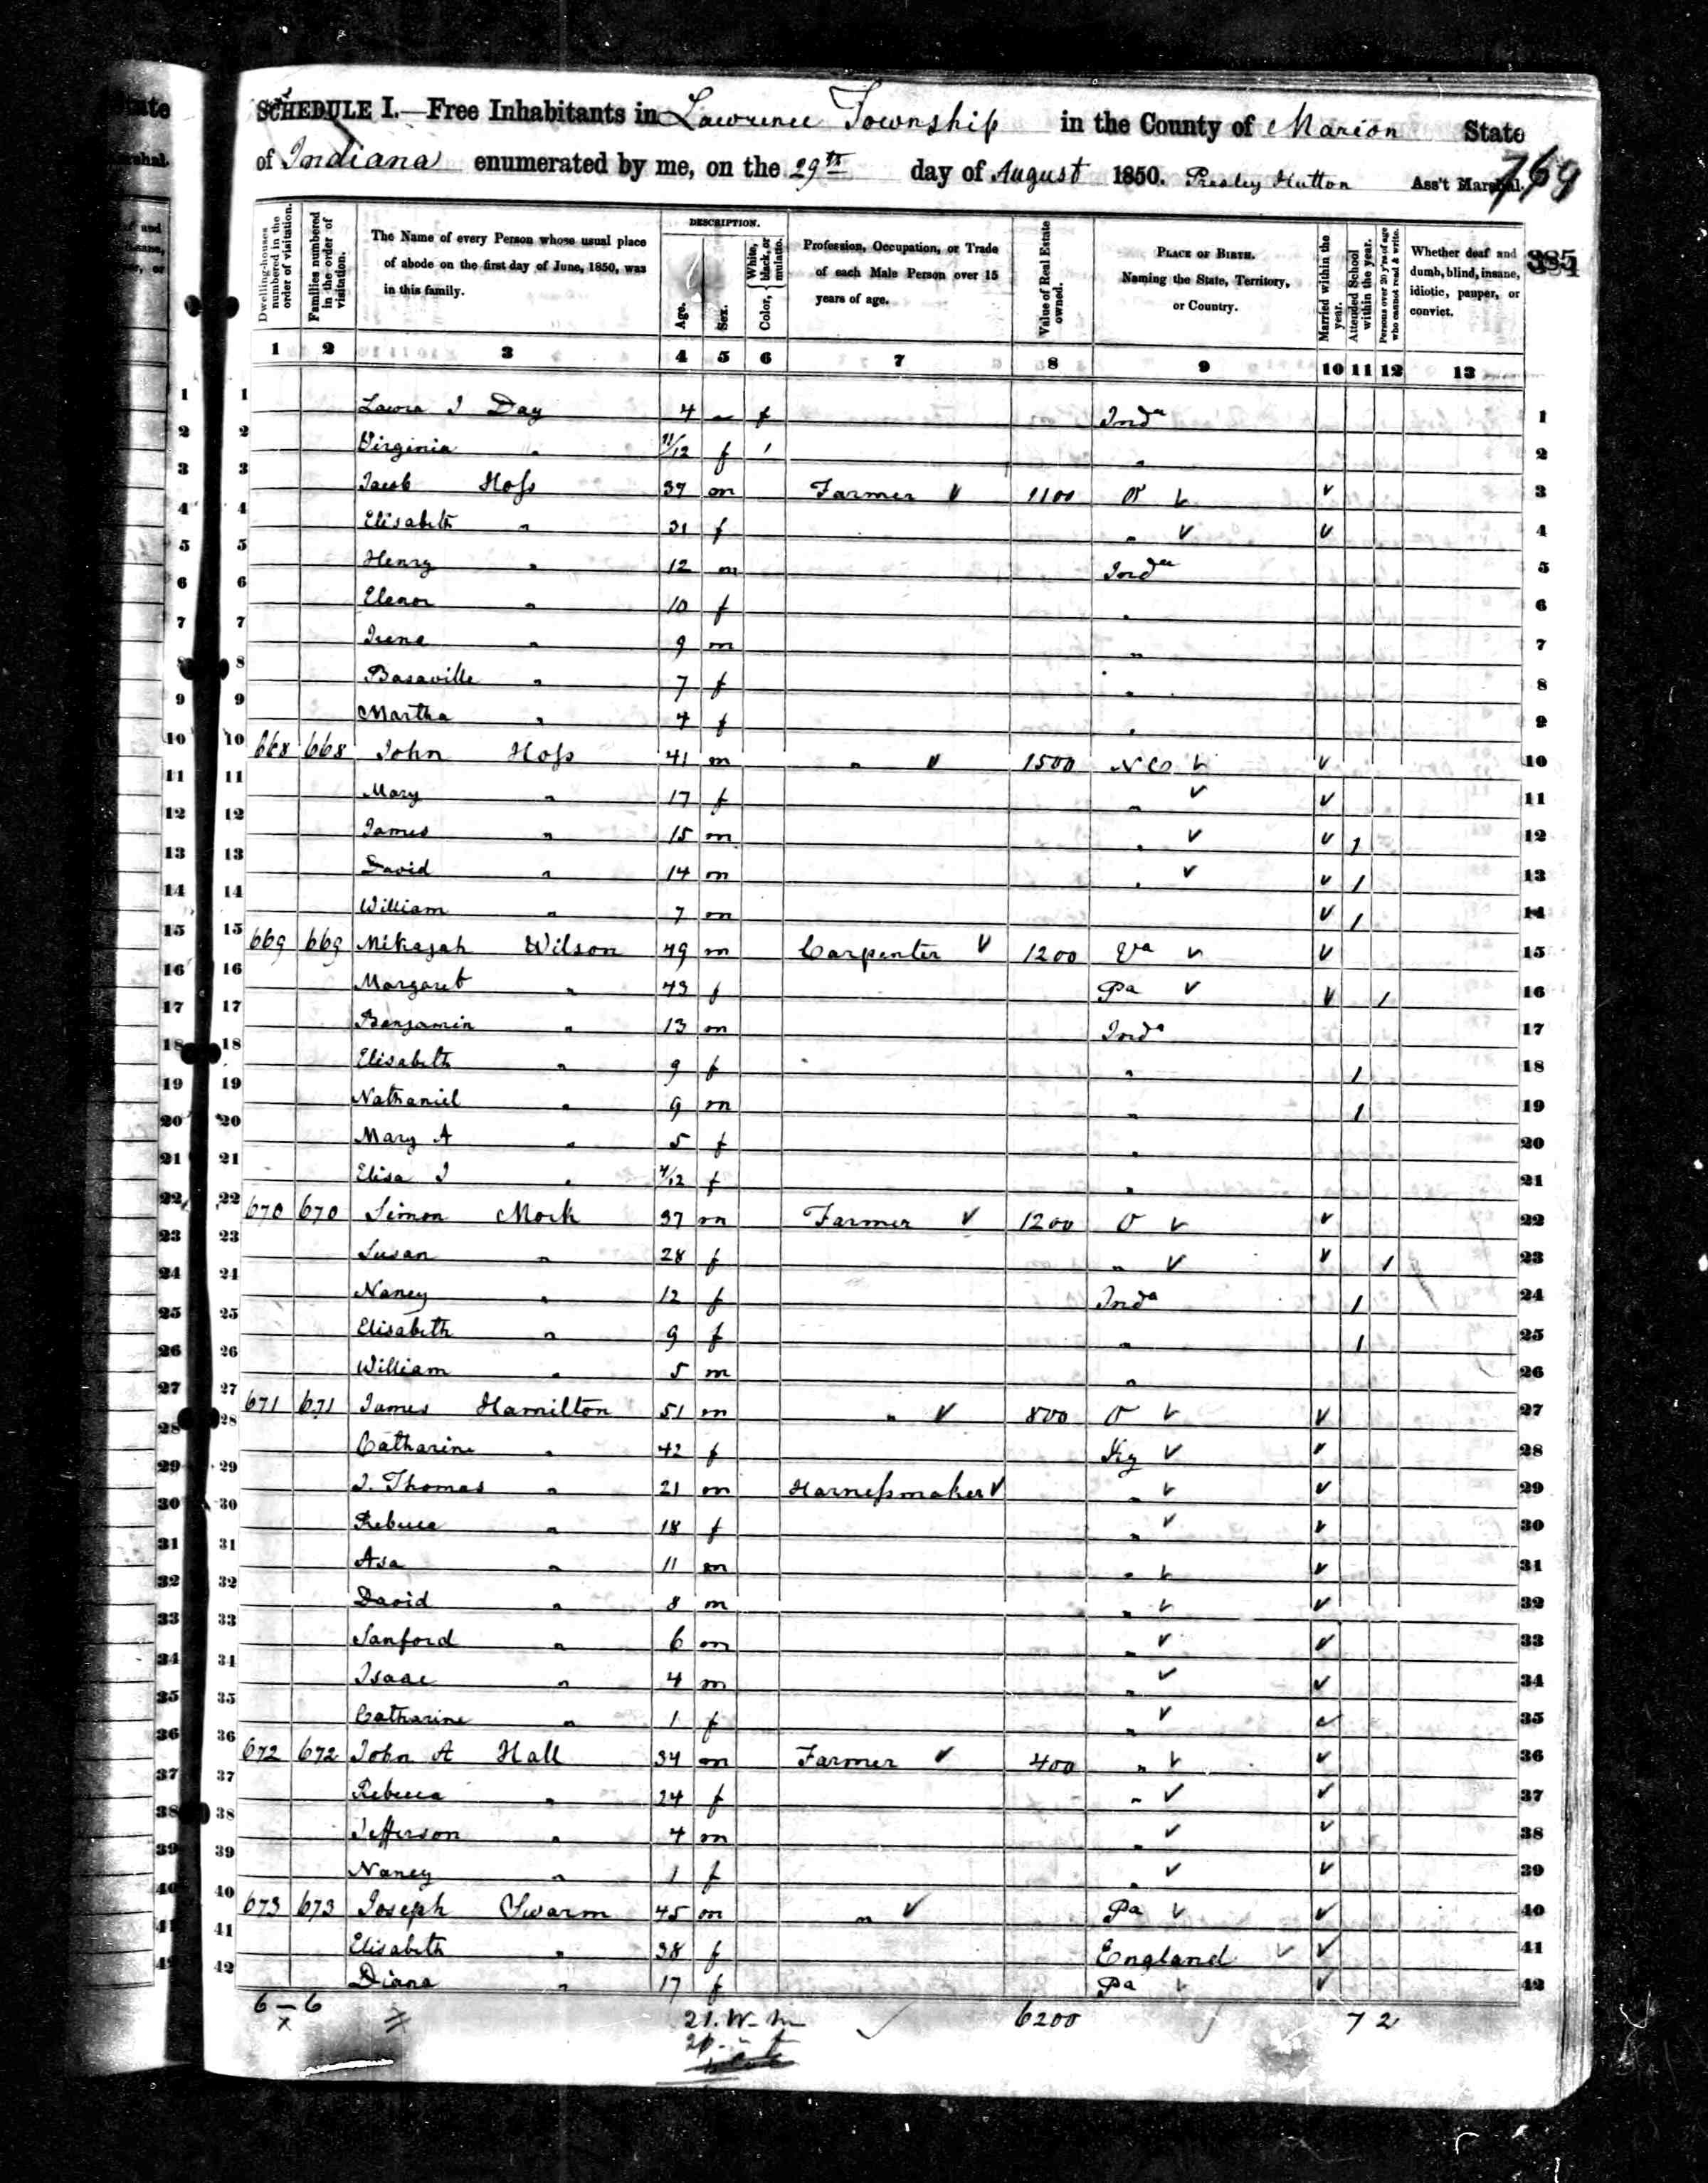 SCHEDULE I.—Free Inhabitants in Lawrence Township in the County of Marion State
of Indiana enumerated by me, on the 29th day of August 1850. Presley Hutton Ass't Marshal.
769
385
Dwelling-houses numbered in the order of visitation.
Families numbered in the order of visitation.
The Name of every Person whose usual place of abode on the first day of June, 1850, was in this family.
DESCRIPTION.
Age.
Sex.
Color, { White, black, or mulatto.
Profession, Occupation, or Trade of each Male Person over 15 years of age.
Value of Real Estate owned.
PLACE OF BIRTH. Naming the State, Territory, or Country.
Married within the year.
Attended School within the year.
Persons over 20 y'rs of age who cannot read & write.
Whether deaf and dumb, blind, insane, idiotic, pauper, or convict.
1 2 3 4 5 6 7 8 9 10 11 12 13
1 Laura J Day 4 f Inda 1
2 Virginia " 11/12 f " 2
3 Jacob Hoss 37 m Farmer ✓ 1100 O ✓ ✓ 3
4 Elisabeth " 31 f " ✓ ✓ 4
5 Henry " 12 m Inda 5
6 Elenor " 10 f " 6
7 Irene " 9 m " 7
8 Basaville " 7 f " 8
9 Martha " 4 f " 9
10 668 668 John Hoss 41 m " ✓ 1500 N C ✓ ✓ 10
11 Mary " 17 f " ✓ ✓ 11
12 James " 15 m " ✓ ✓ 1 12
13 David " 14 m " ✓ ✓ 1 13
14 William " 7 m ✓ 1 14
15 669 669 Mikajah Wilson 49 m Carpenter ✓ 1200 Va ✓ ✓ 15
16 Margaret " 43 f Pa ✓ ✓ 1 16
17 Benjamin " 13 m Inda 17
18 Elisabeth " 9 f " 1 18
19 Nathaniel " 9 m " 1 19
20 Mary A " 5 f " 20
21 Elisa J " 4/12 f " 21
22 670 670 Simon Mock 37 m Farmer ✓ 1200 O ✓ ✓ 22
23 Susan " 28 f " ✓ ✓ 1 23
24 Nancy " 12 f Inda 1 24
25 Elisabeth " 9 f " 1 25
26 William " 5 m " 26
27 671 671 James Hamilton 51 m " ✓ 800 O ✓ ✓ 27
28 Catharine " 42 f Ky ✓ ✓ 28
29 J. Thomas " 21 m Harnessmaker ✓ " ✓ ✓ 29
30 Rebecca " 18 f " ✓ ✓ 30
31 Asa " 11 m " ✓ ✓ 31
32 David " 8 m " ✓ ✓ 32
33 Sanford " 6 m " ✓ ✓ 33
34 Isaac " 4 m " ✓ ✓ 34
35 Catharine " 1 f " ✓ ✓ 35
36 672 672 John A Hall 34 m Farmer ✓ 400 " ✓ ✓ 36
37 Rebecca " 24 f " ✓ ✓ 37
38 Jefferson " 4 m " ✓ ✓ 38
39 Nancy " 1 f " ✓ ✓ 39
40 673 673 Joseph Swarm 45 m " ✓ Pa ✓ ✓ 40
41 Elisabeth " 38 f England ✓ ✓ 41
42 Diana " 17 f Pa ✓ ✓ 42
6 – 6 21. W. m 6200 7 2